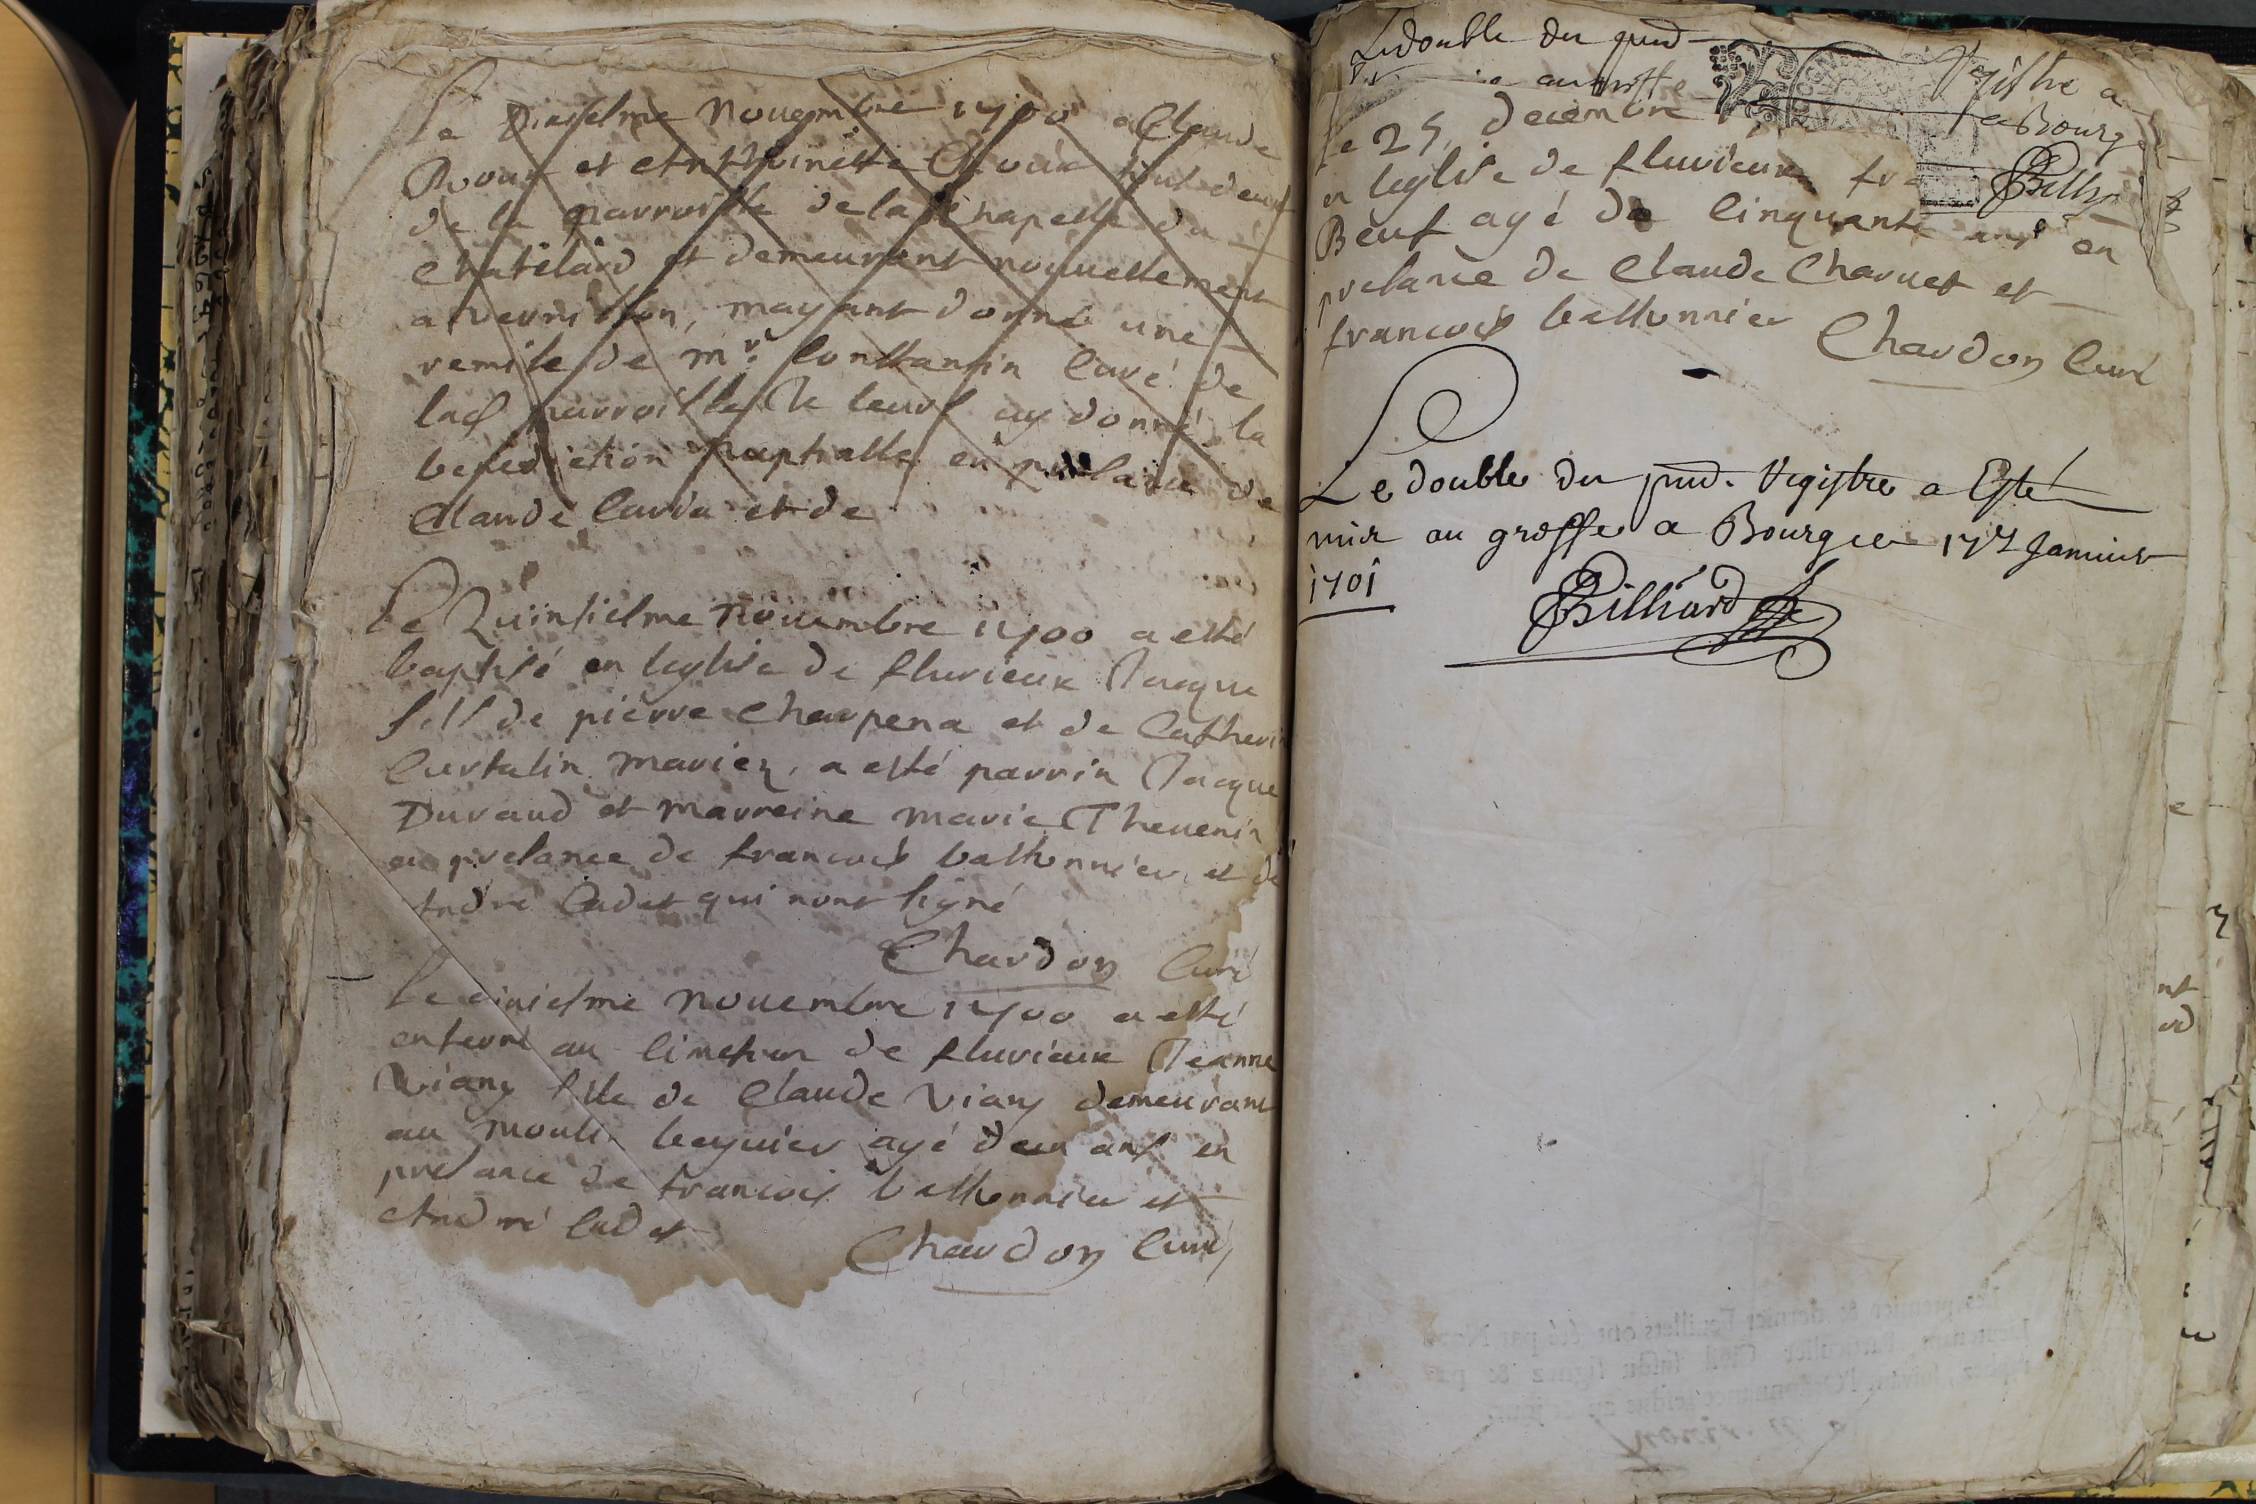 Le Dixiesme Nouembre 1700 a Claude
Rouux et Anthoinette tout deux
de la parroisse de la Chapelle du
Chatelard et demeurant nouuellement
a vernisson, mayant donné une
remise de mr. Constantin Curé de
lad parroisse Je leurs ay donné la
benediction nuptialle en presance de
Claude Curdu et de
Le Quinsiesme nouembre 1700 a esté
baptisé en leglise de fluvieux Jacque
fils de pierre Charpena et de Catherin
Curtalin mariez, a esté parrin Jacque
Durand et marreine marie Theuenin
en presance de francois bastonnier et de
Andre Cadet qui nont signé
Chardon Curé
Le nouembre 1700 a esté
enterré au simetier de fluvieux Jeanne
Viany fille de Claude Viany demeurant
au moulin beguier agé deux ans en
presance de francois bastonnier et
André Cadet
Chardon Curé
Le double du pnd
Registre a
au
a Bourg
Le 25 decembre
en leglise de fluvieux fra
Bill
Beuf agé de Cinquante ans en
presance de Claude Charuet et
francois bastonnier
Chardon Curé
Le double du pnd. Registre a Esté
mis au greffe a Bourg ce 17e Januier
1701
Billiard